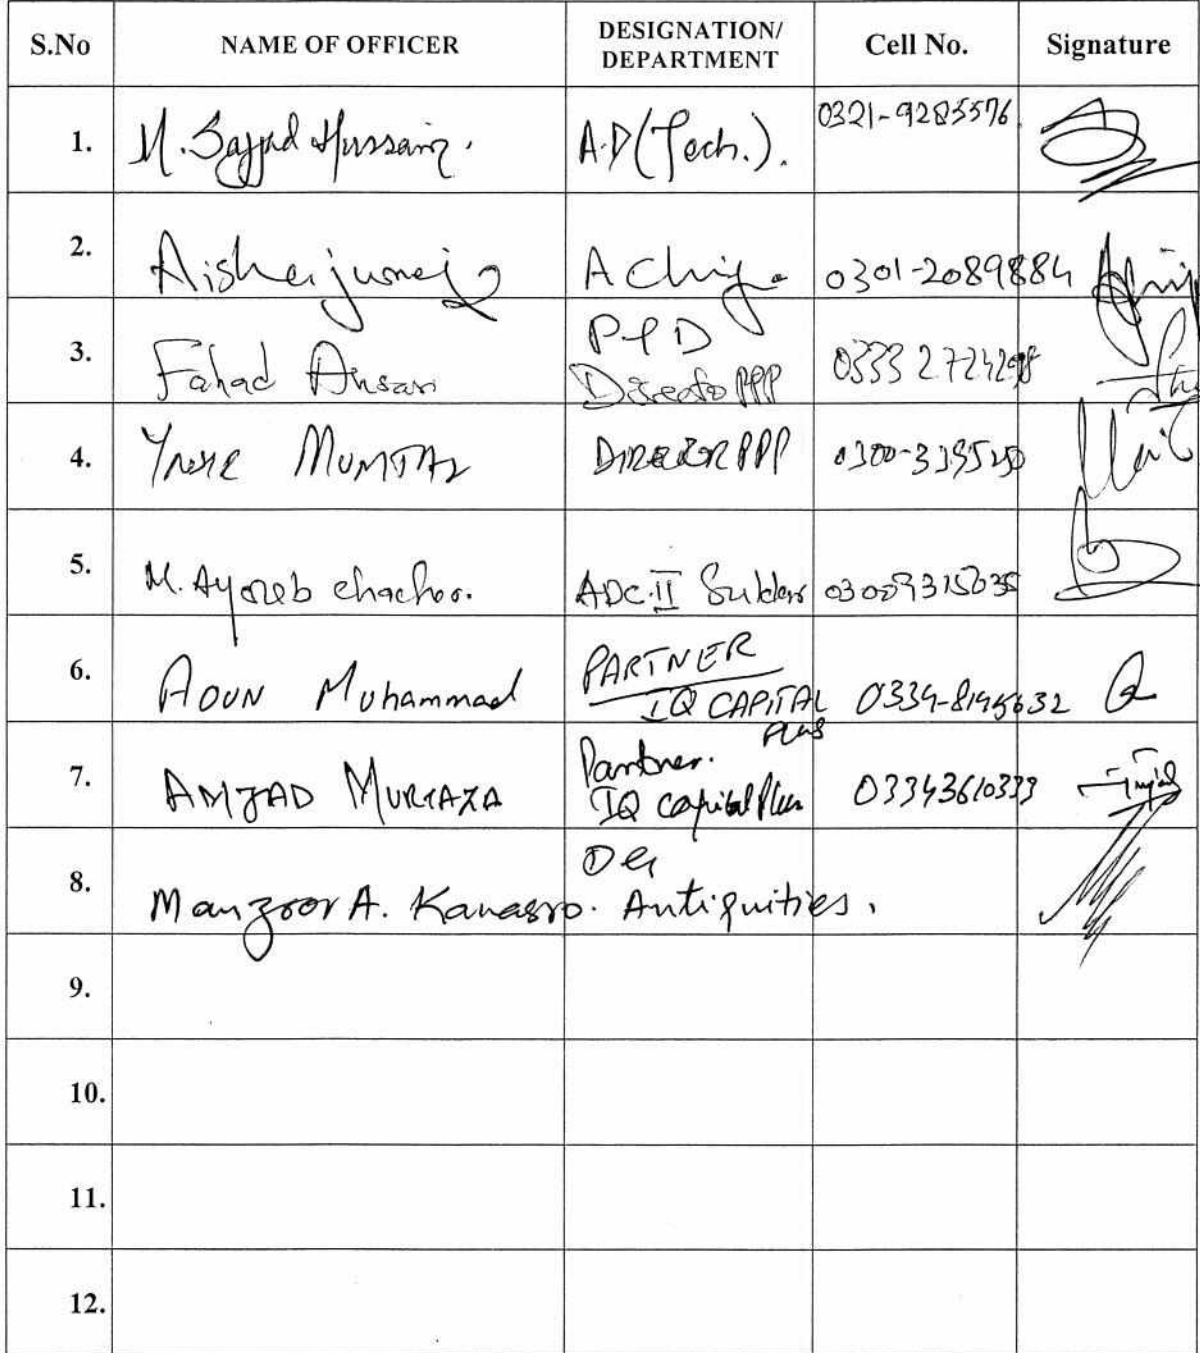 S.No NAME OF OFFICER DESIGNATION/ DEPARTMENT Cell No. Signature
1. M. Sajjad Hussain. A.D (Tech.). 0321-9285576
2. Aisha junejo 0301-2089884
3. Fahad Ansari P&D Director PPP 0333
4. Yasir MUMTAZ DIRECTOR PPP
5. M. Ayoub chachar. ADC-II Sukkur
6. AOUN Muhammad PARTNER IQ CAPITAL PLUS
7. AMJAD MURTAZA Partner. IQ capital Plus 03343610333
8. Manzoor A. Kanasro. DG Antiquities.
9.
10.
11.
12.